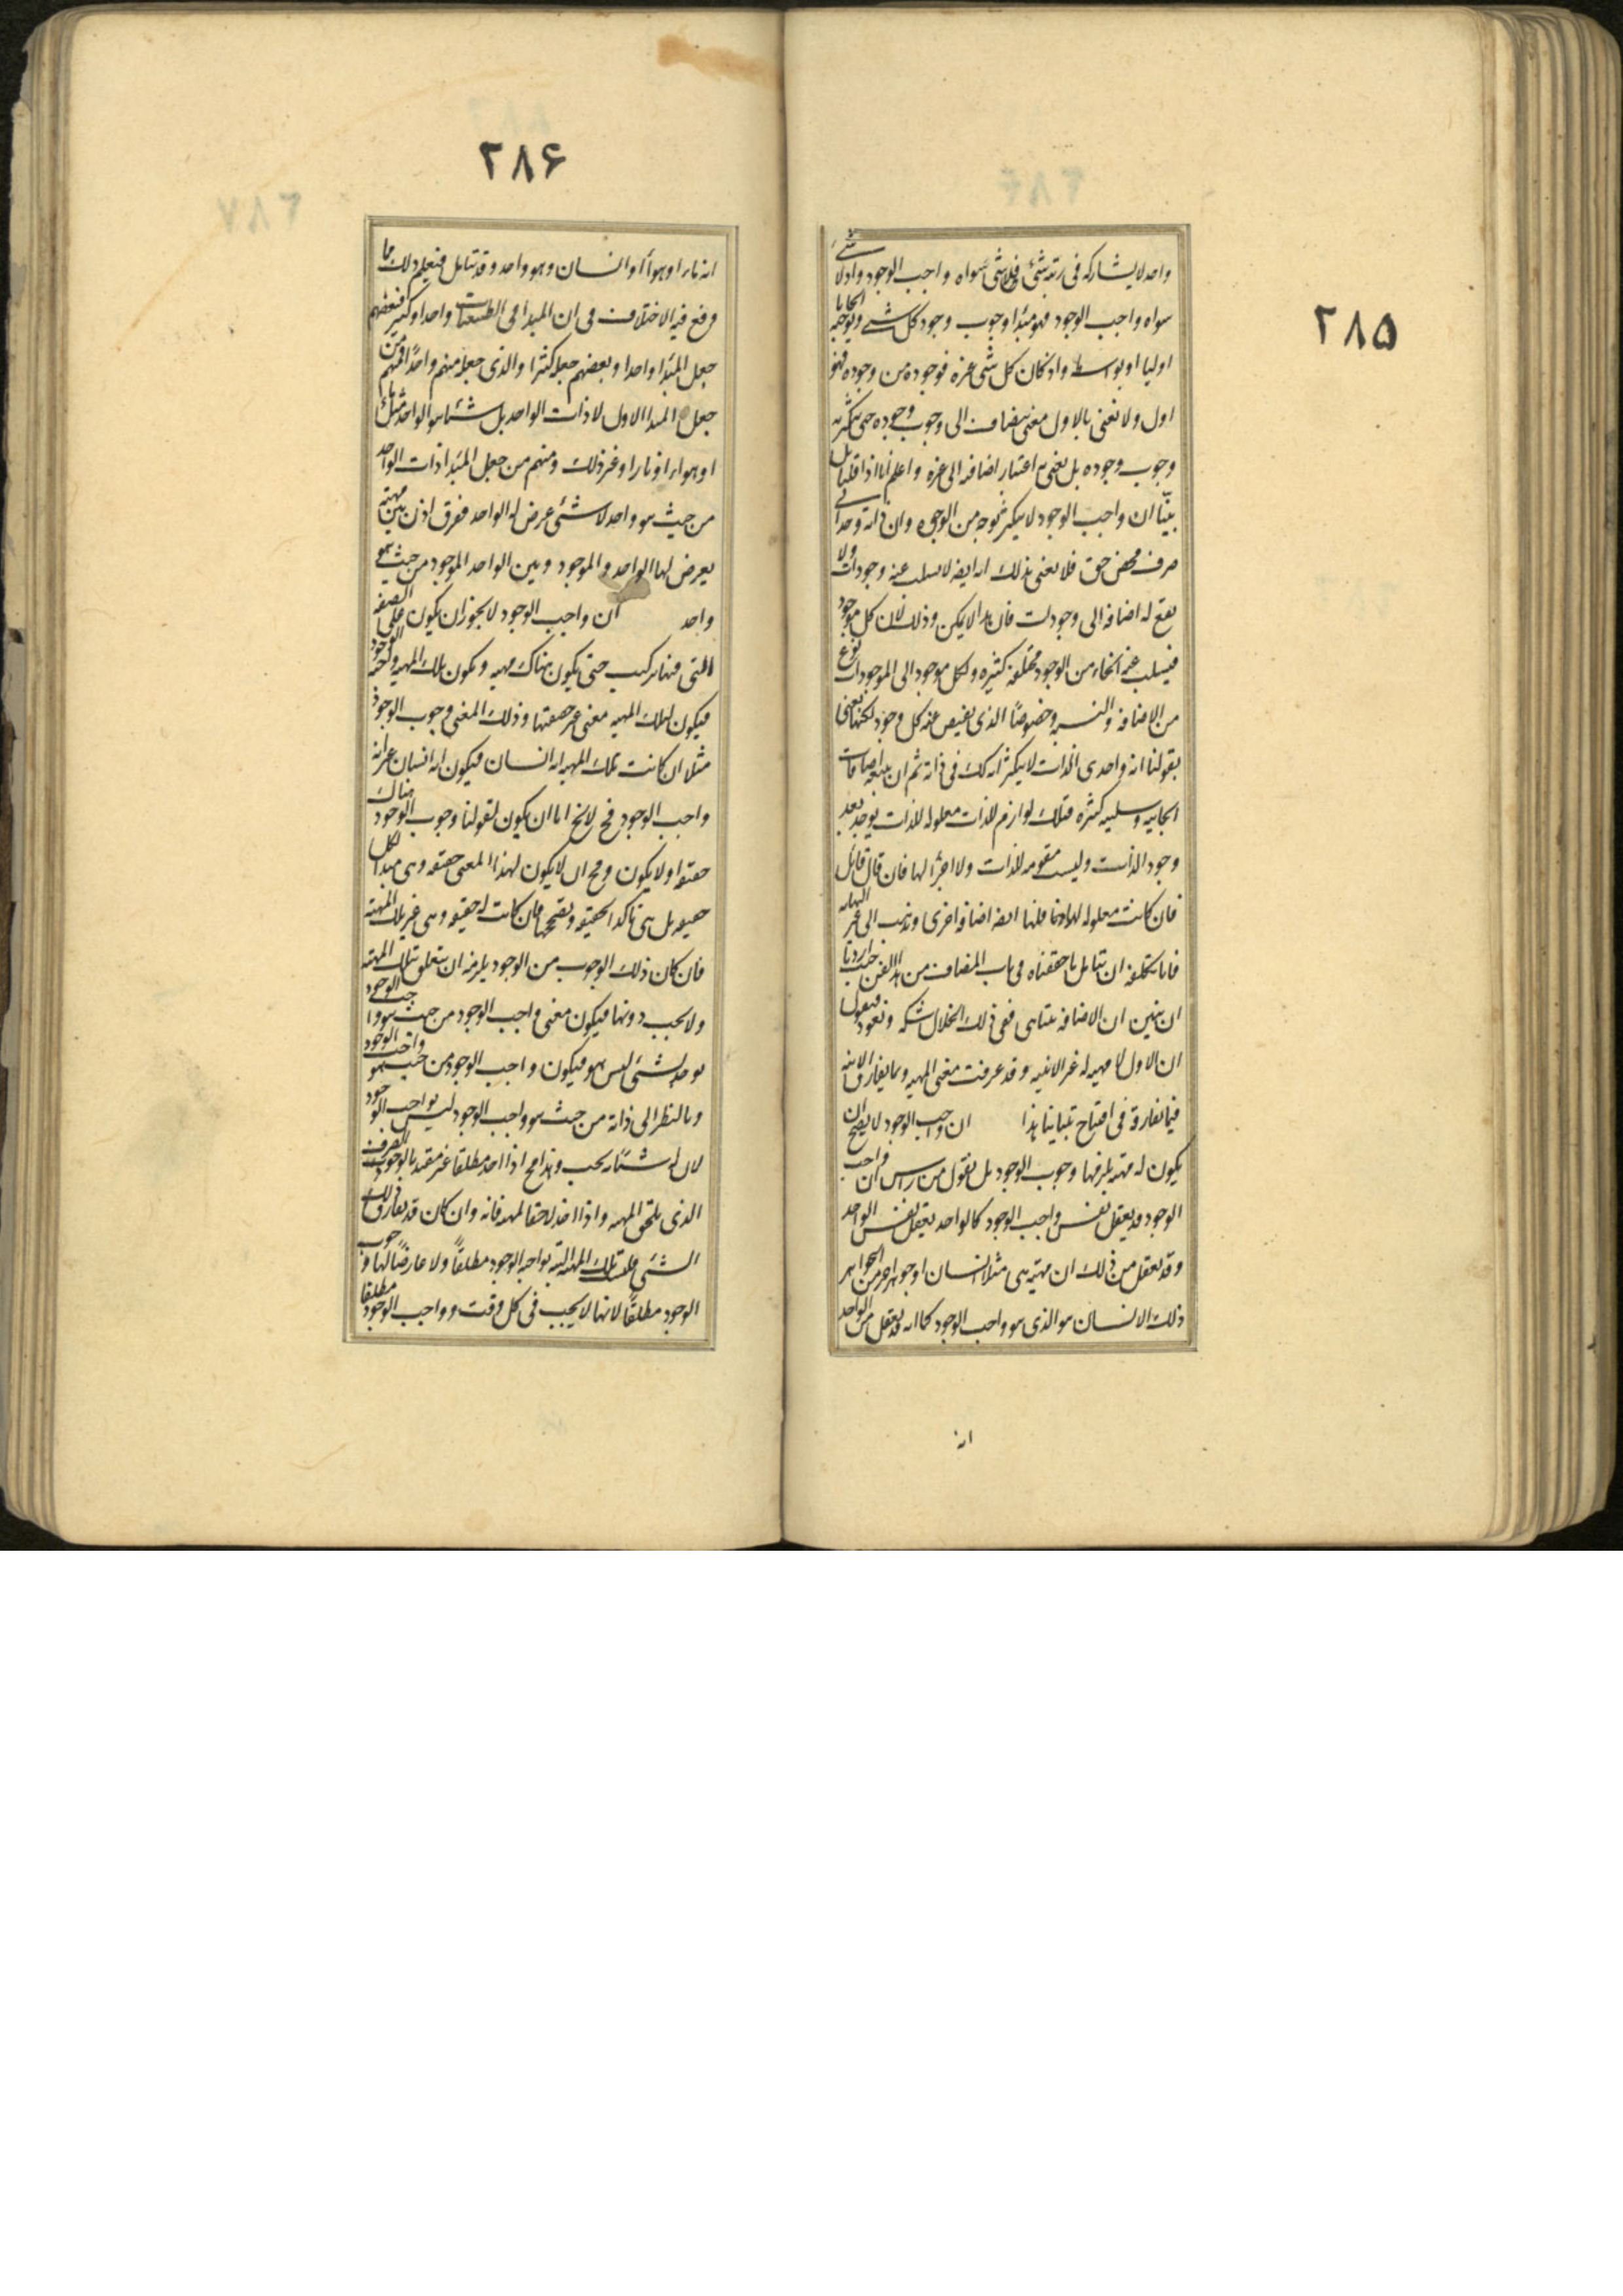 ٢٨٥
واحد لا يشاركه فى رتبته شئ فلا شئ سواه واجب الوجود واذ لا شئ
سواه واجب الوجود فهو مبدا وجوب وجود كل شئ ويوجبه ايجابا
اوليا او بواسطه واذ كان كل شئ غيره فوجوده من وجوده فهو
اول ولا نعنى بالاول معنى ينضاف الى وجوب وجوده حتى يتكثر به
وجوب وجوده بل نعنى به اعتبار اضافته الى غيره واعلم انا اذا قلنا بل
بينا ان واجب الوجود لا يتكثر بوجه من الوجوه وان ذاته وحدانى
صرف محض حق فلا نعنى بذلك انه ايضا لا يسلب عنه وجودات ولا
يقع له اضافه الى وجودات فان هذا لا يمكن وذلك لان كل موجود
فيسلب عنه انحاء من الوجود مختلفه كثيره ولكل موجود الى الموجودات نوع
من الاضافه والنسبه وخصوصًا الذى يفيض عنه كل وجود لكنا نعنى
بقولنا انه واحدى الذات لا يتكثر انه كك فى ذاته ثم ان تبعه اضافات
ايجابيه وسلبيه كثيره فتلك لوازم للذات معلوله للذات يوجد بعد
وجود الذات وليست مقومه للذات ولا اجزأ لها فان قال قائل
فان كانت معلوله فلها ايضا اضافه اخرى ويذهب الى غير النهايه
فانا نكلفه ان يتامل ما حققناه فى باب المضاف من هذا الفن حيث اردنا
ان نبين ان الاضافه يتناهى ففى ذلك انحلال شكه ونعود فنقول
ان الاول لا مهيه له غير الانيه وقد عرفت معنى المهيه وبما يفارق الانيه
فيما تفارقه فى افتتاح تبياننا هذا ان واجب الوجود لا يصح ان
يكون له مهيته يلزمها وجوب الوجود بل نقول من راس ان واجب
الوجود قد يعقل نفس واجب الوجود كالواحد يعقل نفس الواحد
وقد يعقل من ذلك ان مهيته هى مثلا انسان او جوهر اخر من الجواهر
ذلك الانسان هو الذى هو واجب الوجود كما انه قد يعقل من الواحد
انه
٢٨۶
انه نار او هوآ او انسان وهو واحد وقد تتامل فتعلم ذلك مما
وقع فيه الاختلاف فى ان المبدا فى الطبيعيات واحد او كثير فبعضهم
جعل المبدا واحدا وبعضهم جعله كثيرا والذى جعله منهم واحدًا فمنهم من
جعل المبدا الاول لا ذات الواحد بل شيئا هو الواحد مثل مآء
او هواء او نارا وغير ذلك ومنهم من جعل المبدا ذات الواحد
من حيث هو واحد لا شئ عرض له الواحد ففرق اذن بين مهيته
يعرض لها الواحد والموجود وبين الواحد الموجود من حيث هو
واحد ان واجب الوجود لا يجوز ان يكون على الصفه
التى فيها تركيب حتى يكون هناك مهيه ويكون تلك المهيه واجبه الوجود
فيكون لتلك المهيه معنى غير حقيقتها وذلك المعنى وجوب الوجود
مثلا ان كانت تلك المهيه انه انسان فيكون انه انسان غير انه
واجب الوجود فح لا يخ اما ان يكون لقولنا وجوب الوجود هناك
حقيقه او لا يكون ومح ان لا يكون لهذا المعنى حقيقه وهى مبدا لكل
حقيقه بل هى تاكد الحقيقه وتصححها فان كانت له حقيقه وهى غير تلك المهيه
فان كان ذلك الوجوب من الوجود يلزمه ان يتعلق بتلك المهيته
ولا يجب دونها فيكون معنى واجب الوجود من حيث هو واجب الوجود
يوجد لشئ ليس هو فيكون واجب الوجود من حيث هو واجب الوجود
وبالنظر الى ذاته من حيث هو واجب الوجود ليس بواجب الوجود
لان له شيئا به يجب وهذا مح اذا اخذ مطلقا غير مقيد بالوجود الصرف
الذى يلحق المهيه واذا اخذ لاحقا لمهيه فانه وان كان قد يفارق ذلك
الشئ فليست تلك المهيه البته بواجبه الوجود مطلقًا ولا عارضًا لها وجوب
الوجود مطلقًا لانها لا يجب فى كل وقت وواجب الوجود مطلقا